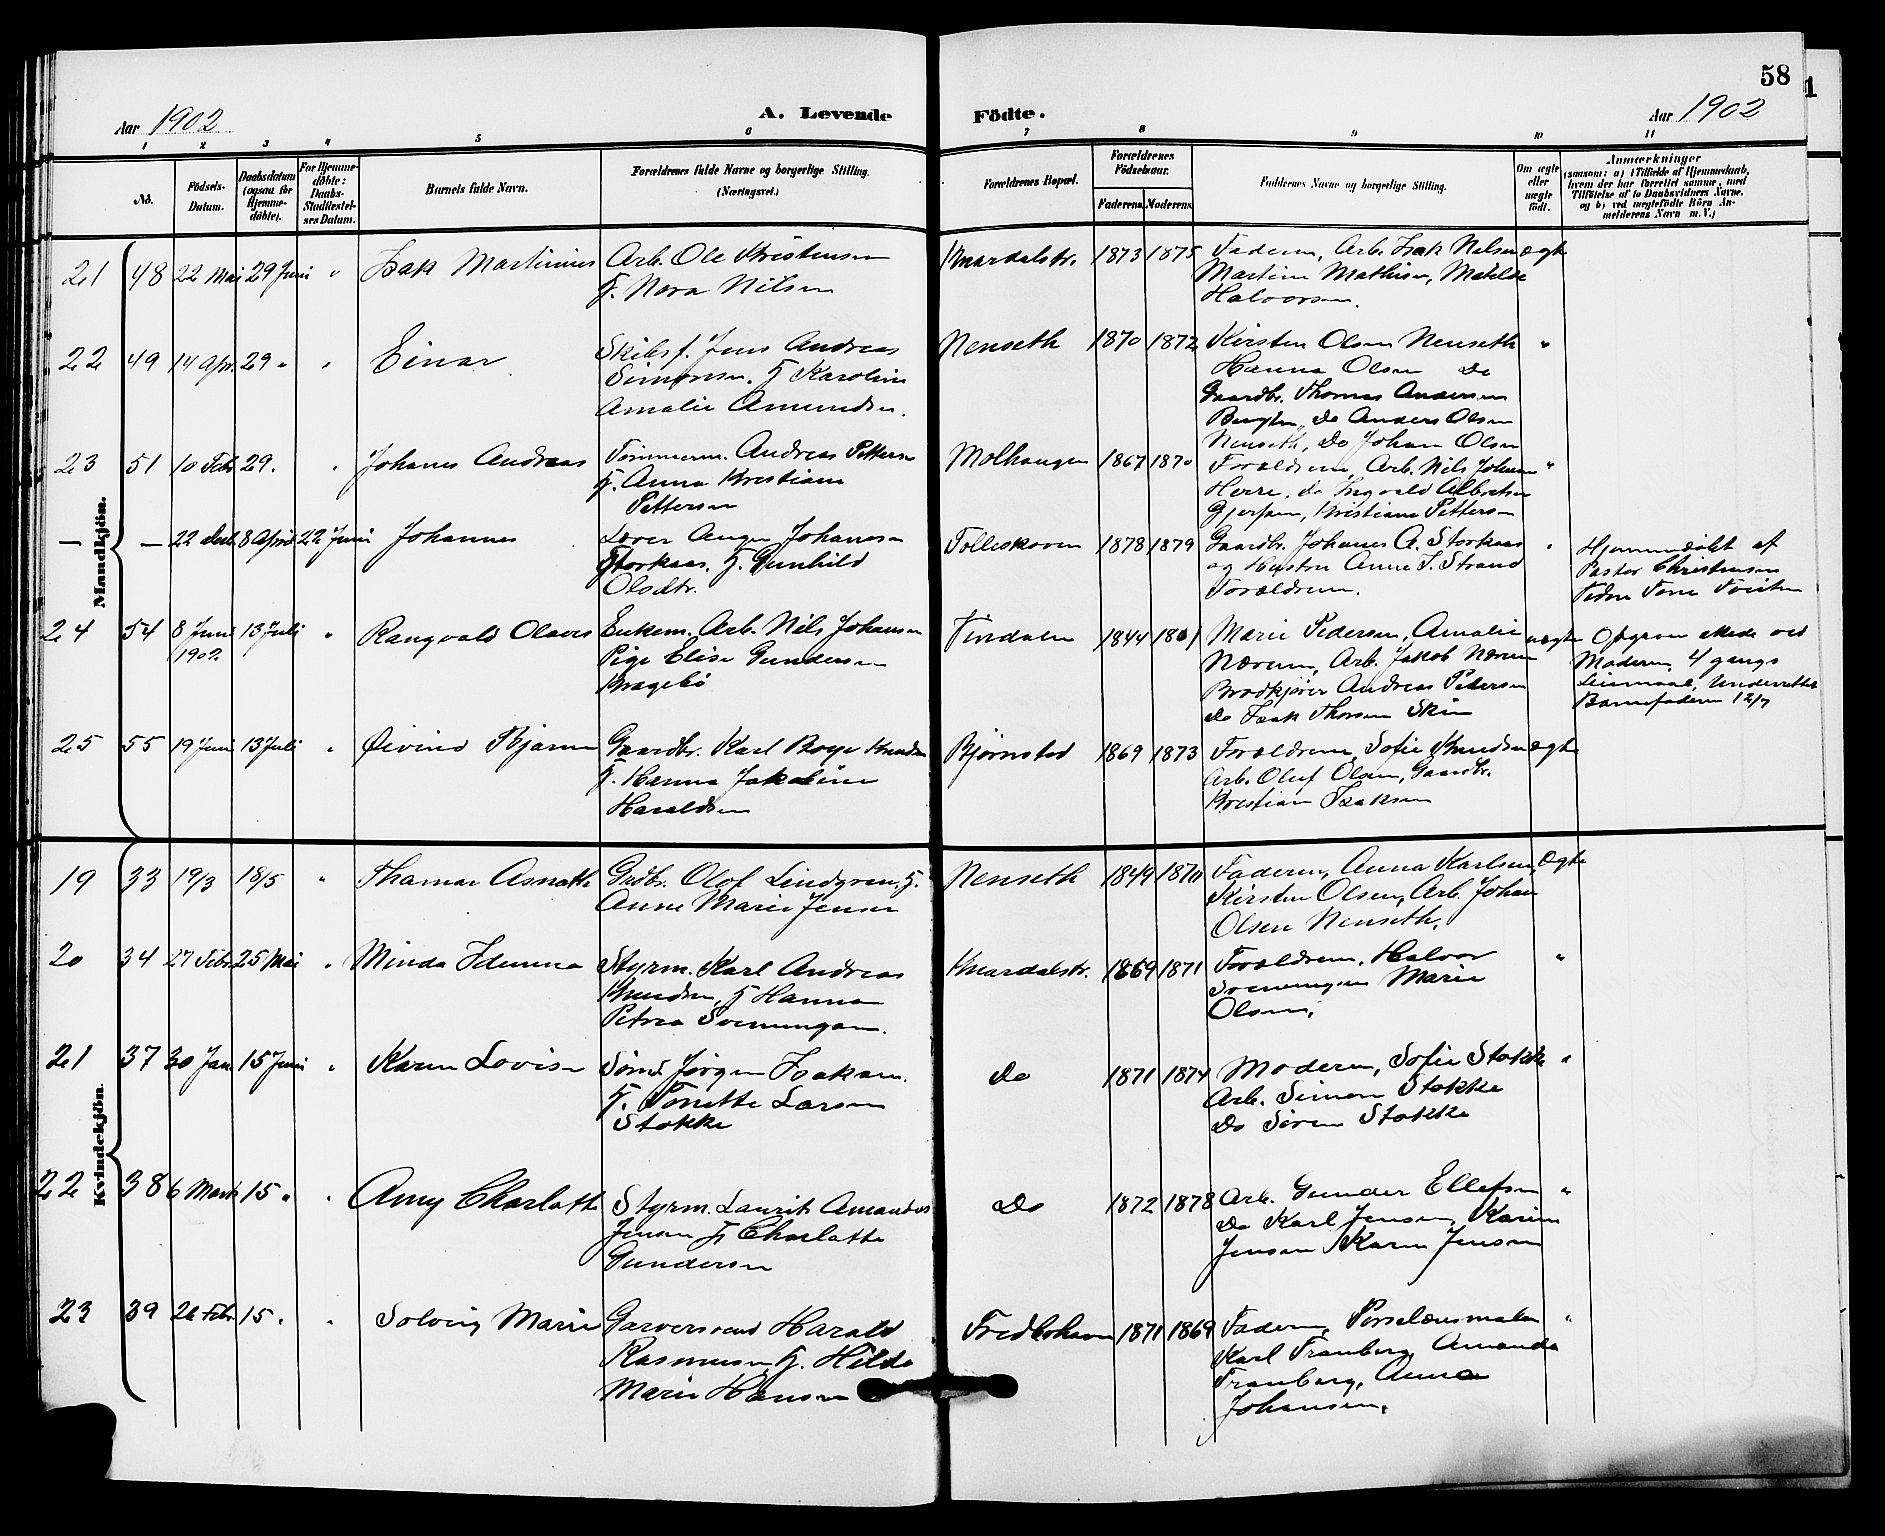 58
1
Aar 1902
A. Levende
Födte.
Aar 1902
1 2 3 4 5 6 7 8 9 10 11
No.
Födsels-Datum.
Daabsdatum (ogsaa for Hjemme-døbte).
For Hjemme-døbte: Daabs-Stadfæstel-ses Datum.
Barnets fulde Navn.
Forældrenes fulde Navne og borgerlige Stilling. (Næringsvei.)
Forældrenes Bopæl.
Forældrenes Födselsaar.
Faderens. Moderens.
Faddernes Navne og borgerlige Stilling.
Om ægte eller uægte födt.
Anmærkninger
(saasom: a) i Tilfælde af Hjemmedaab,
hvem der har forrettet samme, med
Tilföielse af to Daabsvidners Navne,
og b) ved uægtefödte Börn An-
melderens Navn m. V.)
Mandkjön.
21 48 22 Mai 29 Juni " Isak Martinius Arb. Ole Kristensen Knardalstr. 1873 1875 Faderen, Arb. Isak Nilsen ægte
H. Nora Nilsen Martin Mathisen, Matilde
Halvorsen.
22 49 14 Apr. 29 " " Einar Skibsf. Jens Andreas Nenseth 1870 1872 Kirsten Olsen Nenseth "
Simonsen. H Karoline Hanna Olsen do
Amalie Amundsen. Gaardbr. Thomas Andersen
do Anders Olsen
Nenseth, Do Johan Olsen
23 51 10 Febr 29. " Johanes Andreas Tømmerm. Andreas Pettersen Molhaugen 1867 1870 Forældrene, Arb. Nils Johansen "
H. Anna Kristiane Herre, do Ingvald Albertsen
Pettersen Gjerpen, Kristiane Pettersen
— — 22 Decb. 8 April 22 Juni Johannes Lærer Aanon Johannesen Folleskoven 1878 1879 Gaardbr. Johanes A. Storkaas " Hjemmedøbt af
Storkaas. H. Gunhild og Hustru Anne J. Strand Pastor Christensen
Olsdtr. Forældrene.
24 54 8 Juni 1902 13 Juli " Rangvald Olaves Enkem. Arb. Nils Johansen Findalen 1844 1861 Marie Pedersen, Amalie uægte Opgaven skede ved
Pige Elise Gundersen Nærum, Arb. Jakob Nærum Moderen, 4 gangs
Kragebø Brødkjører Andreas Pedersen Leiermaal, Underrettet
do Isak Thorsen Skien Barnefaderen 12/7
25 55 19 Juni 13 Juli " Øivind Bjarne Gaardbr. Karl Boye Knudsen Bjørnstad 1869 1873 Forældrene, Sofie Knudsen ægte
H. Hanna Jakobine Arb. Oluf Olsen, Gaardbr.
Haraldsen Kristian Isaksen
Kvindekjön.
19 33 19/3 18/5 " Thamar Asnath Grdbr. Olof Lindgren, H. Nenseth 1849 1870 Faderen, Anna Karlsen, Ægte
Anne Marie Jensen Kirsten Olsen, Arb. Johan
Olsen Nenseth.
20 34 27 Febr. 25 Mai " Minda Idunna Styrm. Karl Andreas Knardalstr. 1869 1871 Forældrene, Halvor "
Knudsen, H Hanna Sveningsen Marie
Petrea Sveningsen. Olsen.
21 37 30 Jan. 15 Juni " Karen Lovise Sømd. Jørgen Isaksen. Do 1871 1874 Moderen, Sofie Stokke "
H. Tonette Larsen Arb. Simon Stokke
Stokke Do Søren Stokke
22 38 6 Marts 15 " " Amy Charlotte Styrm. Laurits Amandus Do 1872 1878 Arb. Gunder Ellefsen "
Jensen H Charlotte do Karl Jensen, Karine
Gundersen Jensen Karen Jensen
23 39 26 Febr. 15 " " Solveig Marie Garversvend Harald Fredbohavn 1871 1869 Faderen, Porselænsmaler "
Rasmussen, H. Hilda Karl Tranberg, Amanda
Marie Hansen Tranberg, Anna
Johansen.